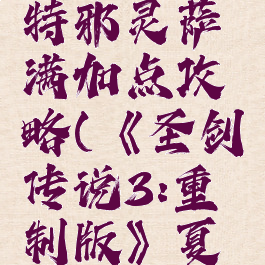 特邪灵萨
满加点攻
略(《圣剑
传说3:重
制版》夏